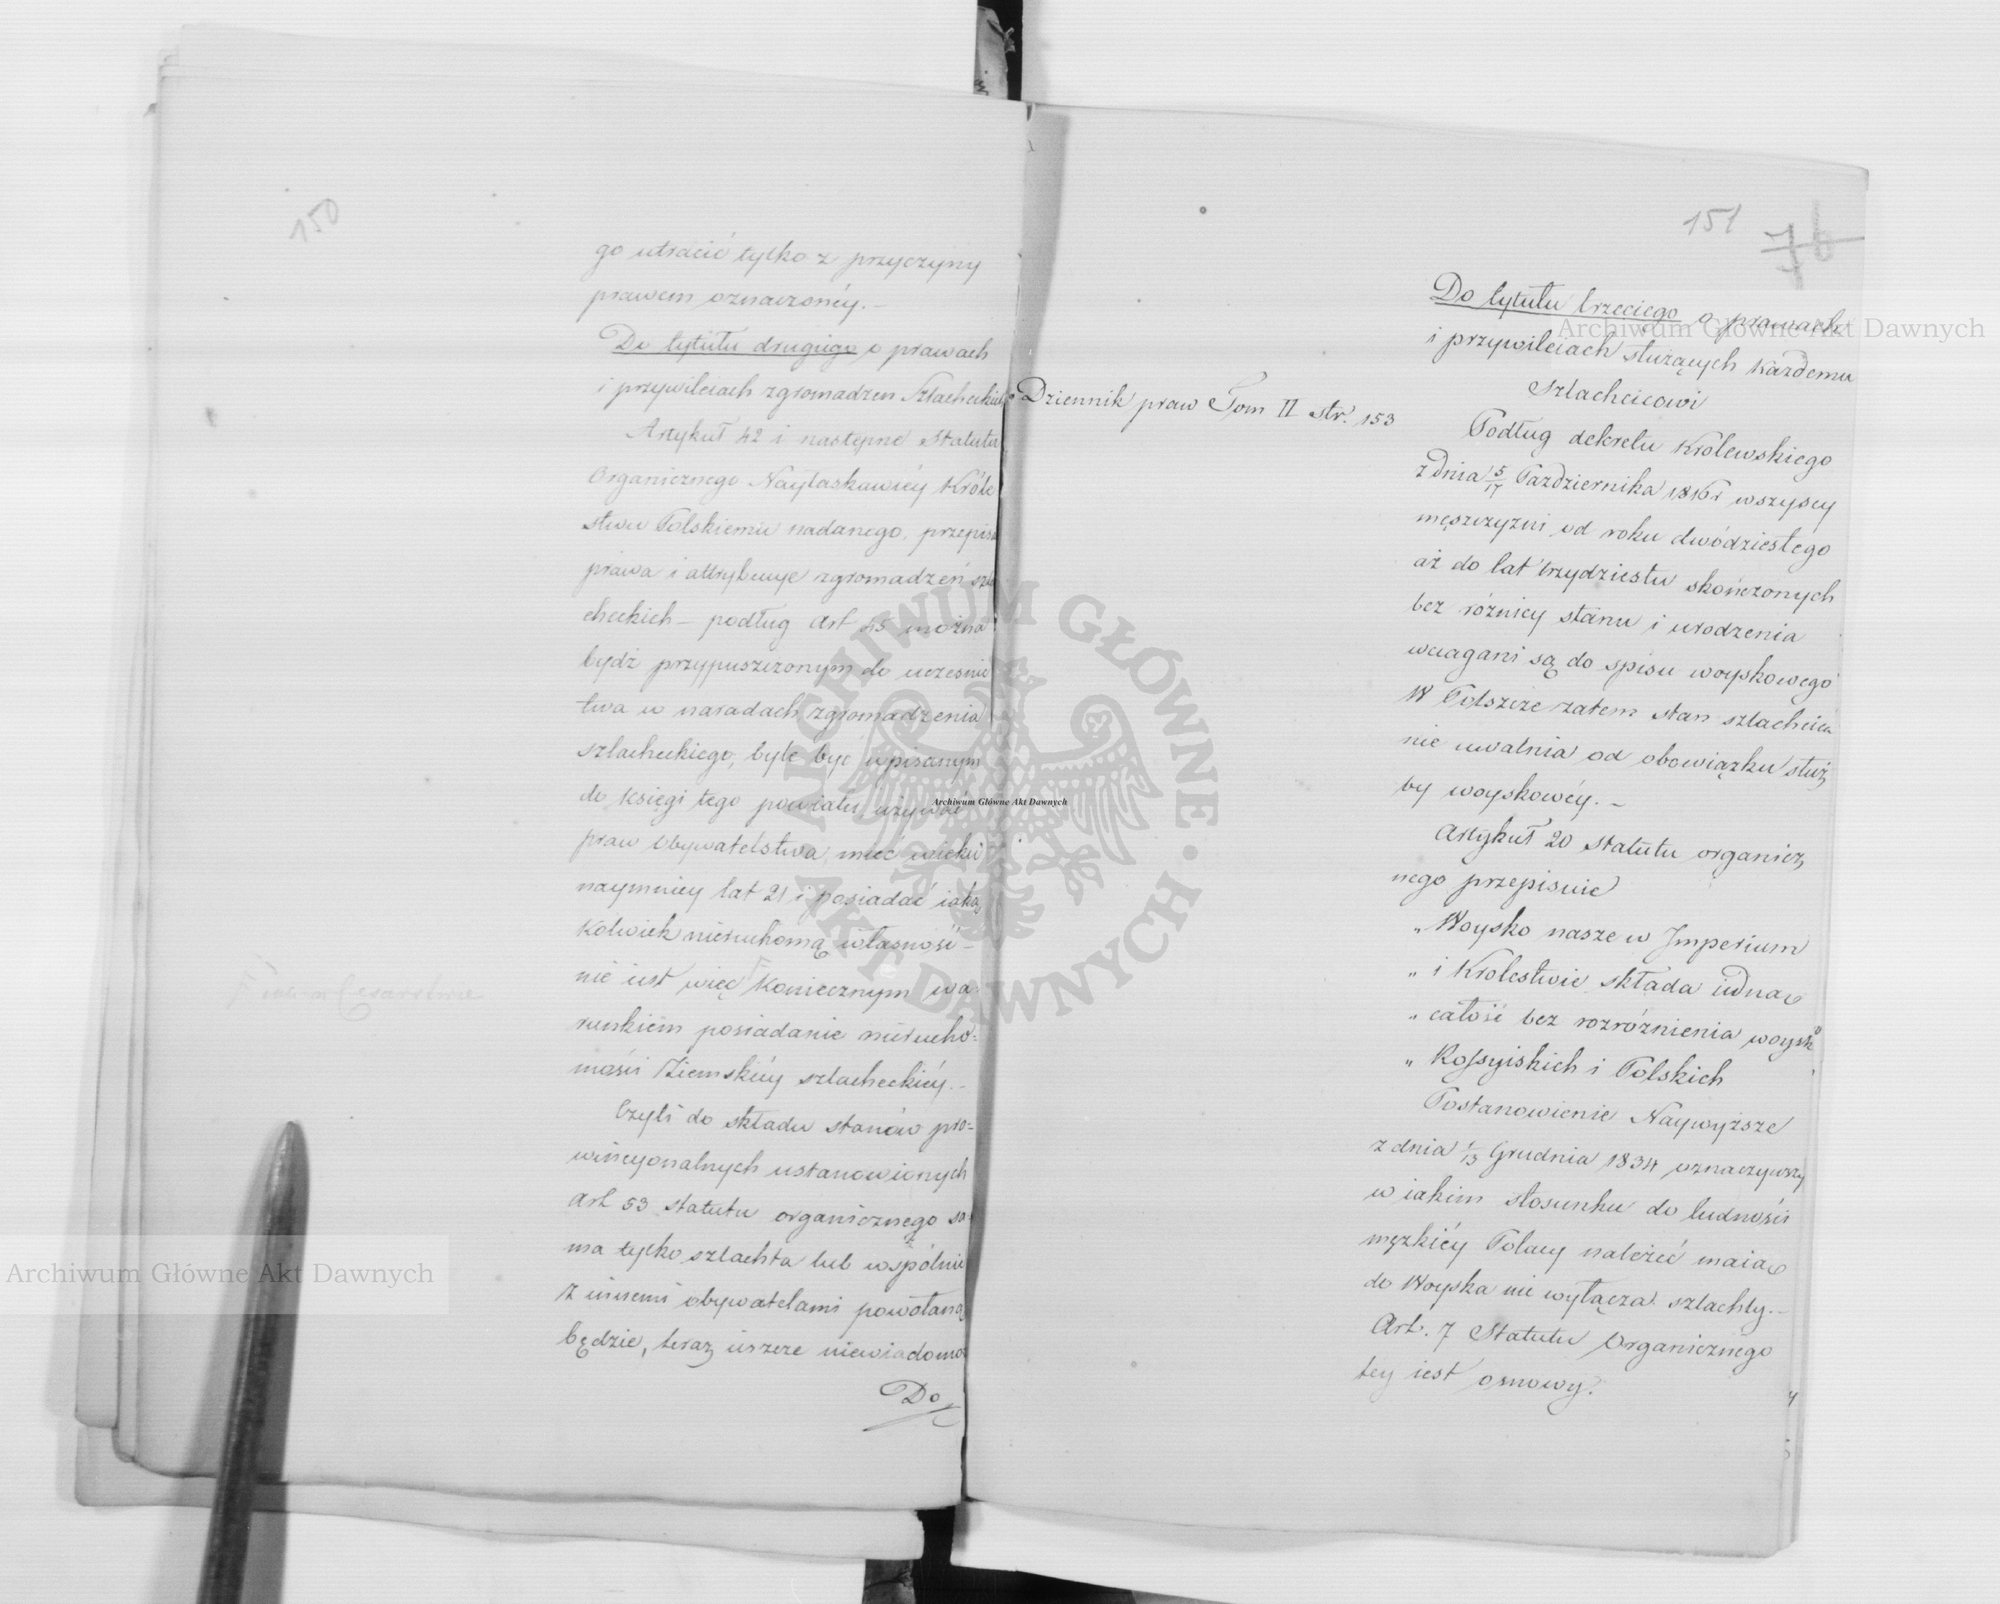 150
go utracić tylko z przyczyny
prawem oznaczonéy. –
Do tytułu drugiego o prawach
i przywileiach zgromadzen Szlacheckich
Artykuł 42 i następne Statutu
Organicznego Nayłaskawiéy Króle
stwu Polskiemu nadanego, przepisu
prawa i attrybucye zgromadzeń szla
checkich – podług Art 45 można
bydź przypuszczonym do uczesnic
twa w naradach zgromadzenia
szlacheckiego, byle być wpisanym
do księgi tego powiatu, używać
praw Obywatelstwa, mieć wieku
naymniey lat 21 i posiadać iaką
kolwiek nieruchomą własność –
nie iest więc koniecznym wa
runkiem posiadanie nierucho-
mości Ziemskiéy szlacheckiéy. –
Czyli do składu stanów pro-
wincyonalnych ustanowionych
Art 53 statutu organicznego sa
ma tylko szlachta lub wspólnie
z innemi obywatelami powołaną
będzie, teraz ieszcze niewiadomo
Do
151
76
Dziennik praw Tom II str. 153
Do tytułu trzeciego o prawach
i przywileiach służących każdemu
Szlachcicowi
Podług dekretu Królewskiego
z dnia 5/17 Października 1816 r wszyscy
męszczyzni od roku dwódziestego
aż do lat trzydziestu skończonych
bez różnicy stanu i urodzenia
wciągani są do spisu woyskowego
W Polszcze zatem stan szlachcica
nie uwalnia od obowiązku służ
by woyskowéy. –
Artykuł 20 statutu organicz
nego przepisuie
„ Woysko nasze w Imperium
„ i Królestwie składa iedną
„ całość bez rozróżnienia woysk
„ Rossyiskich i Polskich
Postanowienie Naywyższe
z dnia 1/13 Grudnia 1834 oznaczywszy
w iakim stosunku do ludności
męzkiéy Polacy należeć maią
do Woyska nie wyłącza szlachty. –
Art. 7 Statutu Organicznego
tey iest osnowy:
Archiwum Główne Akt Dawnych
Archiwum Główne Akt Dawnych
Archiwum Główne Akt Dawnych
ARCHIWUM GŁÓWNE • AKT DAWNYCH •